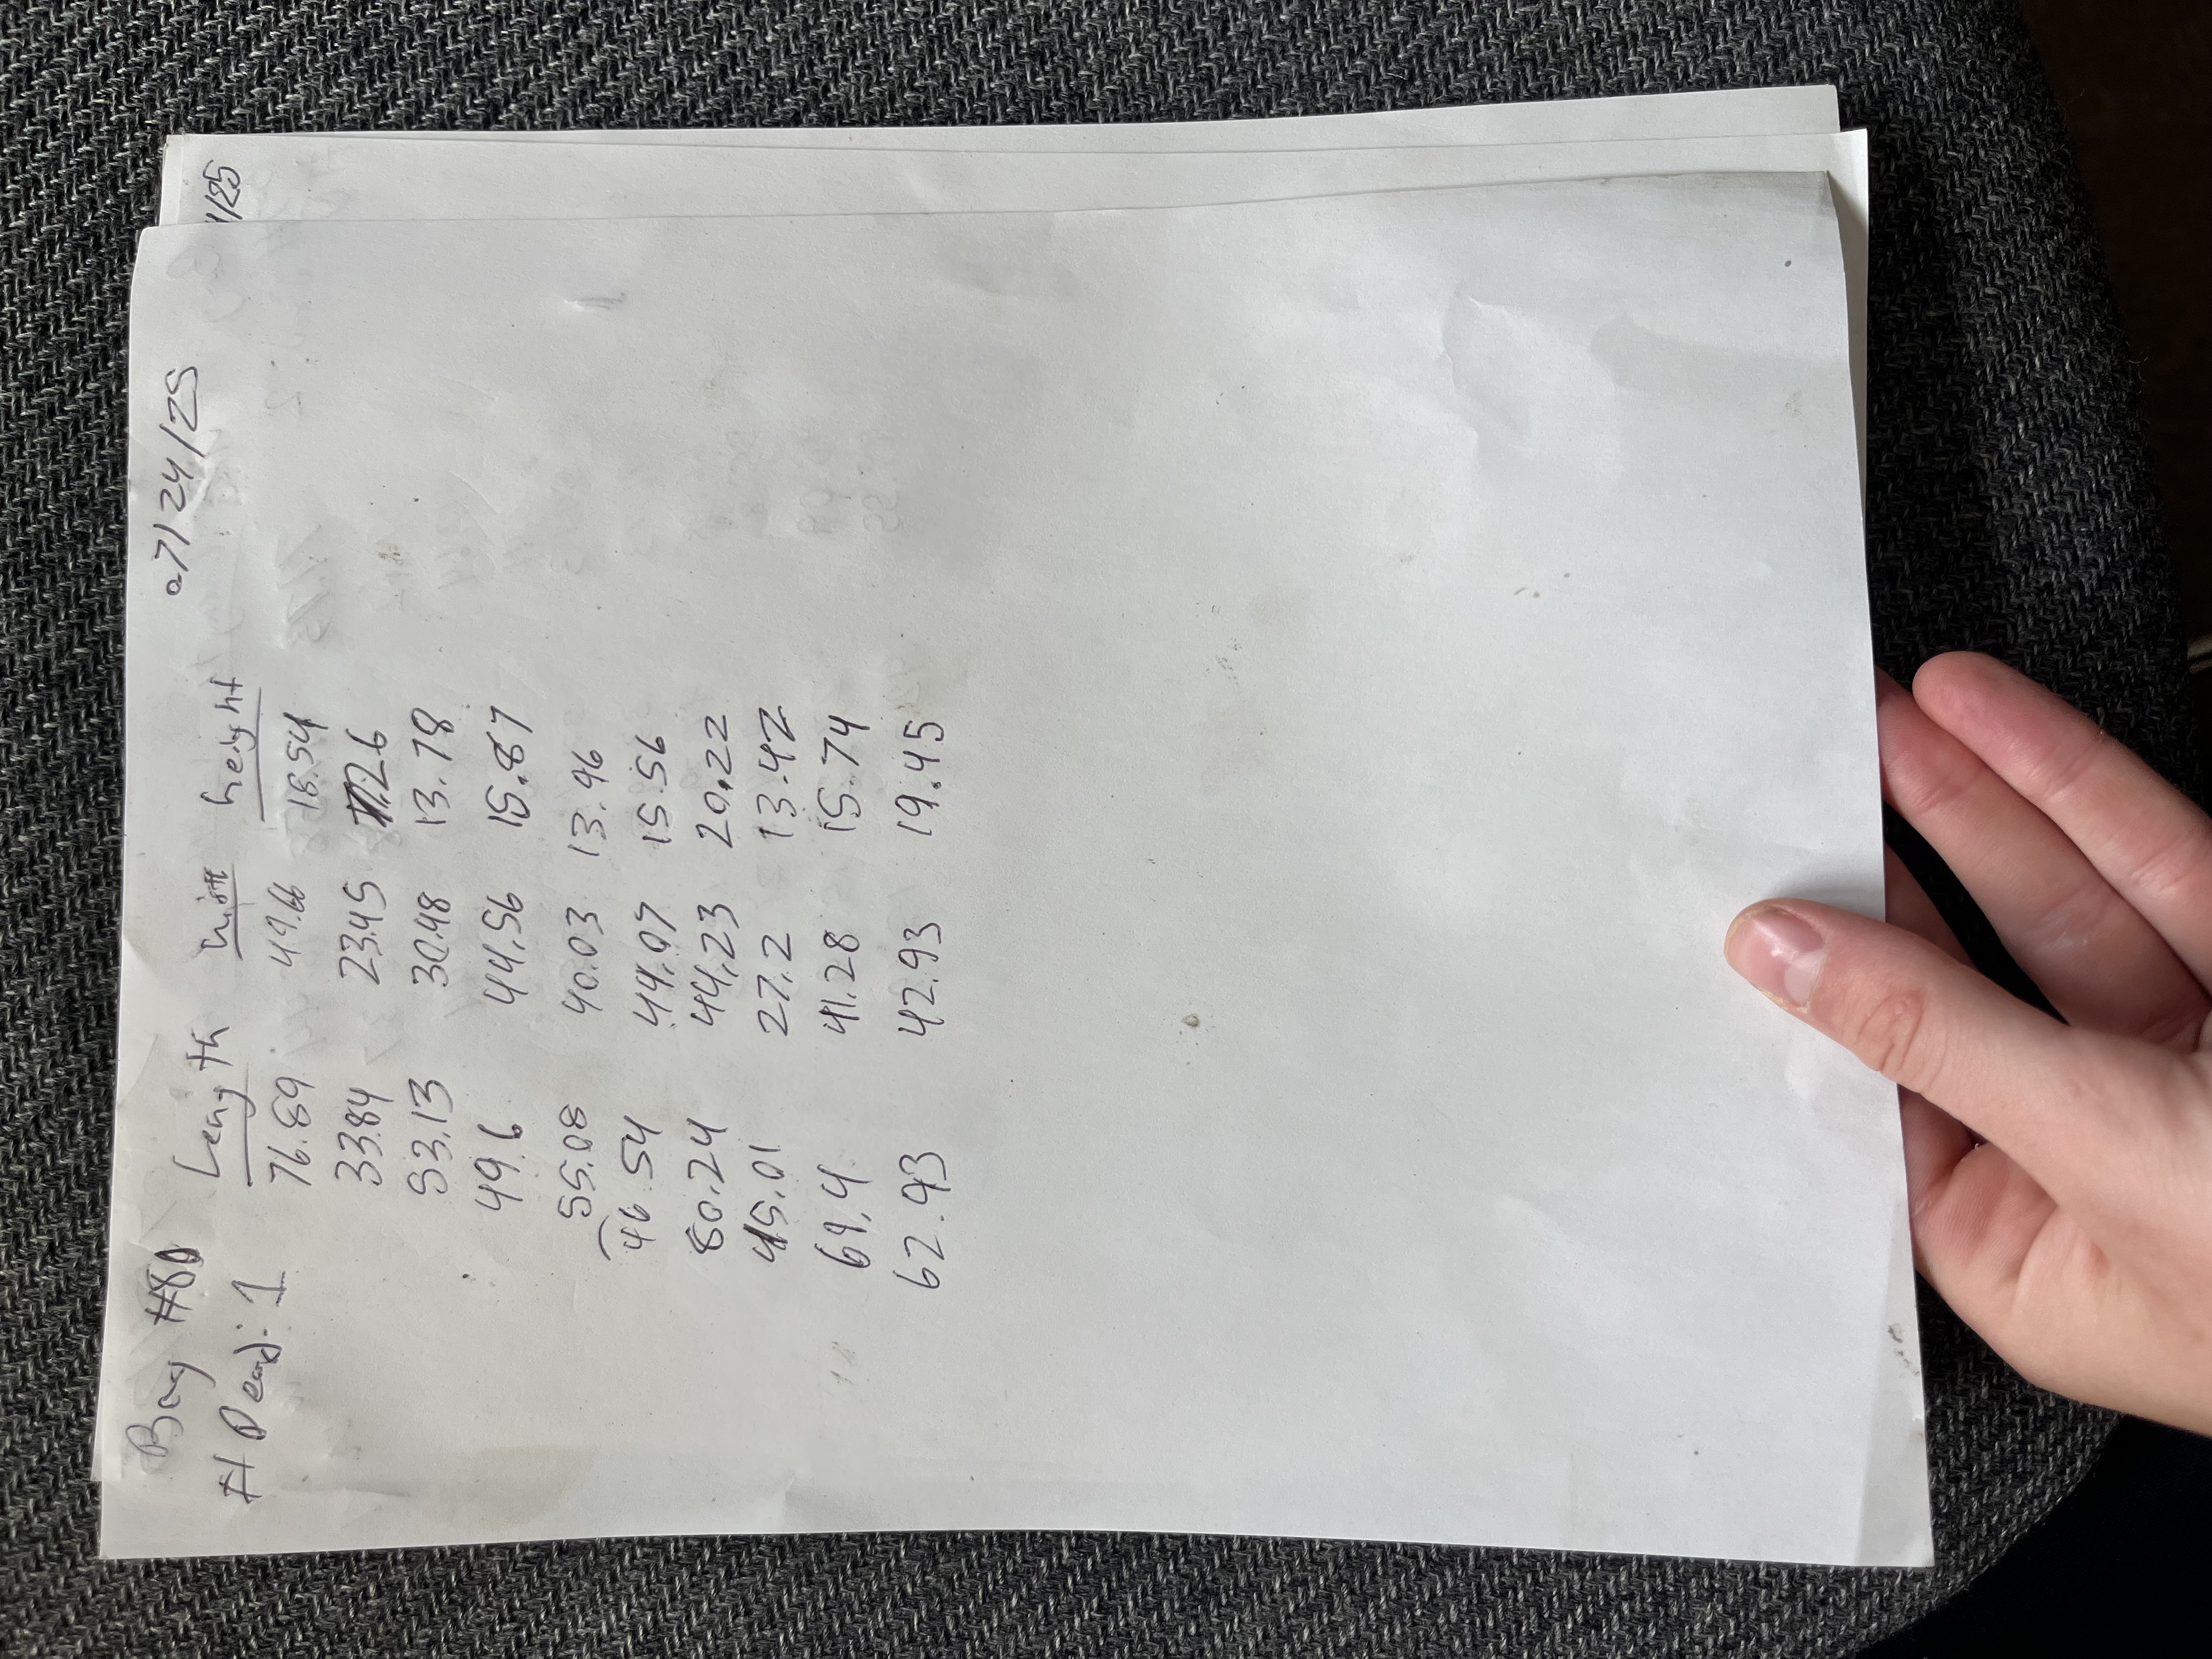 Bag #80
07/24/25
# Dead: 1
Length width height
76.89 49.66 18.54
33.84 23.45 11.26
53.13 30.48 13.78
49.6 44.56 15.87
55.08 40.03 13.96
46.54 44.07 15.56
80.24 44.23 20.22
45.01 27.2 13.42
69.4 41.28 15.74
62.93 42.93 19.45
/25